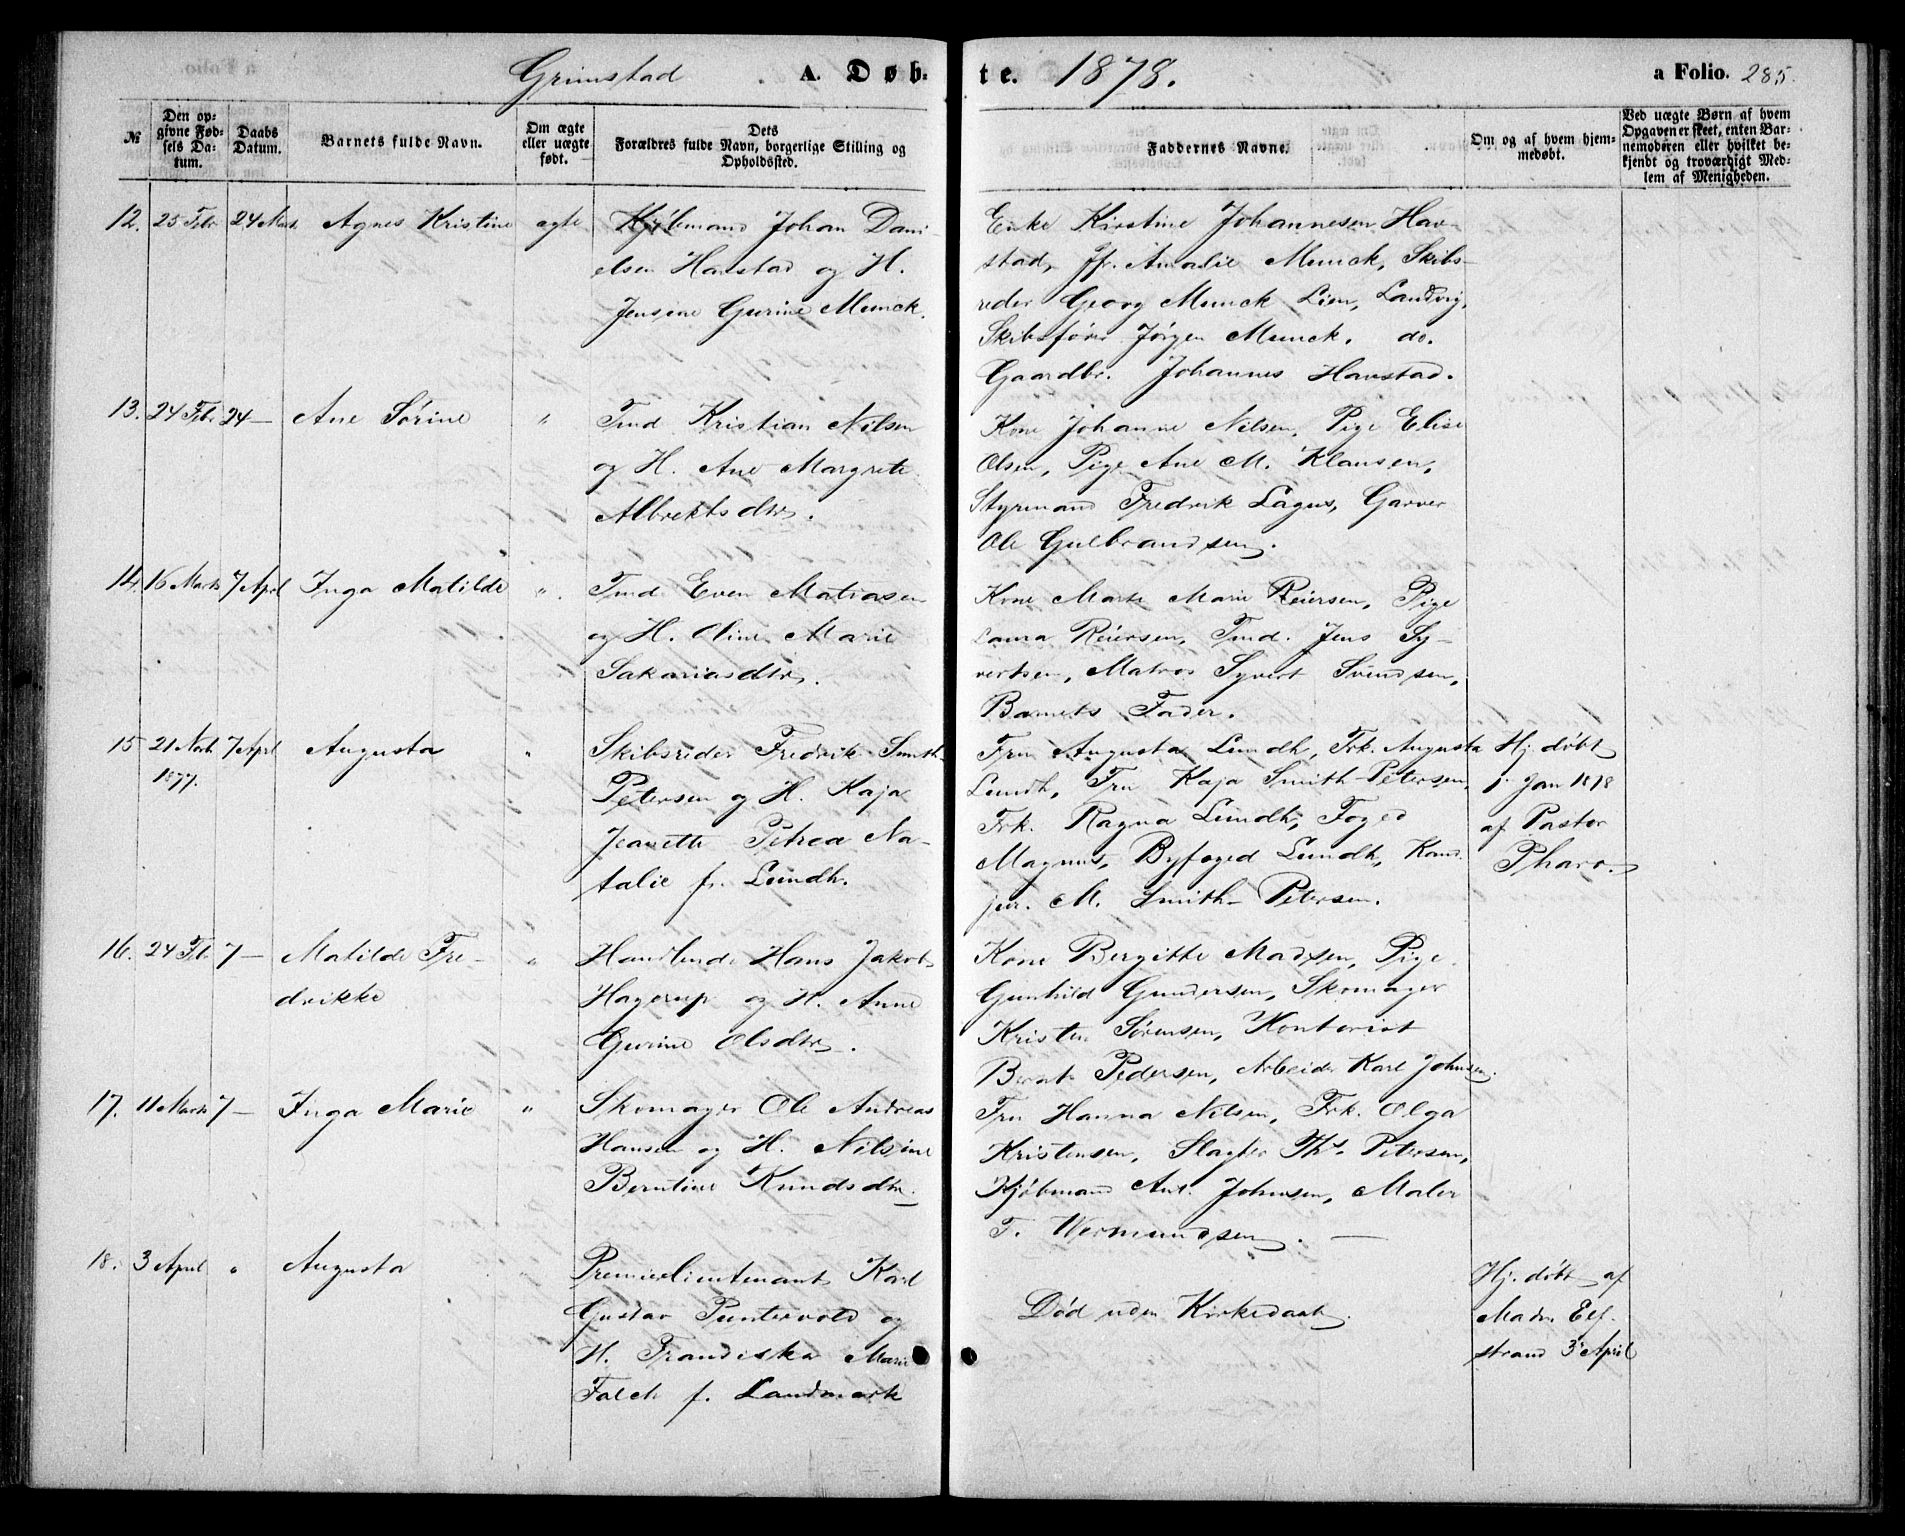 Grimstad A. Døb- te. 1878. a Folio. 285.
№ | Den opgivne Fødsels Datum. | Daabs Datum. | Barnets fulde Navn. | Om ægte eller uægte født. | Dets Forældres fulde Navn, borgerlige Stilling og Opholdssted. | Faddernes Navne. | Om og af hvem hjemmedøbt. | Ved uægte Børn af hvem Opgaven er skeet, enten Barnemoderen eller hvilket bekjendt og troværdigt Medlem af Menigheden.
12. 25 Febr 24 Marts Agnes Kristine ægte Kjøbmand Johan Dani-
elsen Havstad og H.
Jensine Gurine Munck.
Enke Kirstine Johannesen Hav-
stad, Jfr. Amalie Munck, Skibs-
reder Georg Munck Lien, Landvig,
Skibsfører Jørgen Munck. do.
Gaardbr. Johannes Havstad.
13. 24 Febr 24 — Ane Sørine " Tmd Kristian Nilsen
og H. Ane Margrete
Albrektsdtr.
Kone Johanne Nilsen, Pige Elise
Olsen, Pige Ane M. Klausen,
Styrmand Fredrik Lagus, Garver
Ole Gulbrandsen.
14. 16 Marts 7 April Inga Matilde " Tmd Even Matiasen
og H. Oline Marie
Sakariasdtr.
Kone Marte Marie Reiersen, Pige
Laura Reiersen, Tmd. Jens Sy-
vertsen, Matros Syvert Svendsen,
Barnets Fader.
15 21 Novb. 7 April Augusta " Skibsreder Fredrik Smith-
1877.
Petersen og H. Kaja
Jeanette Petrea Na-
talie f. Lundh.
Fru Augusta Lundh, Frk. Augusta
Lundh, Fru Kaja Smith-Petersen,
Frk. Ragna Lundh, Foged
Magnus, Byfoged Lundh, Kand.
jur. M. Smith-Petersen.
Hj. døbt
1. Jan 1878
af Pastor
Pharo.
16. 24 Fb. 7 — Matilde Fre- " Handlende Hans Jakob
drikke
Hagerup og H. Anne
Gurine Olsdtr.
Kone Bergitte Madsen, Pige
Gunhild Gundersen, Skomager
Kristen Sørensen, Kontorist
Bernt Pedersen, Arbeider Karl Johnsen.
17. 11 Marts 7 — Inga Marie " Skomager Ole Andreas
Hansen og H. Nilsine
Berntine Knudsdtr.
Fru Hanna Nilsen, Frk. Olga
Kristensen, Slagter Ths. Petersen,
Kjøbmand Ant. Johnsen, Maler
F. Wermundsen. —
18. 3 April " Augusta " Premierlieutenant Karl
Gustav Puntervold og
H. Frandiska Marie
Falch f. Landmark
Død uden Kirkedaab.
Hj. døbt af
Madm Elf-
strand 3 April